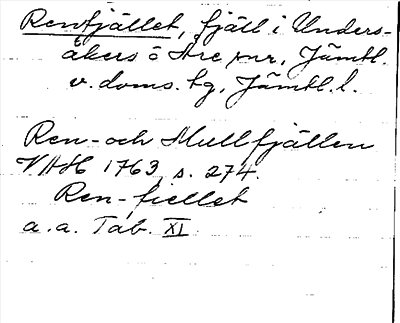 Renfjället, fjäll i Unders-
åkers o Åre snr, Jämtl.
v. doms. tg, Jämtl. l.
Ren- och Mullfjällen
VAH 1763, s. 274.
Ren-fiellet
a. a. Tab. XI